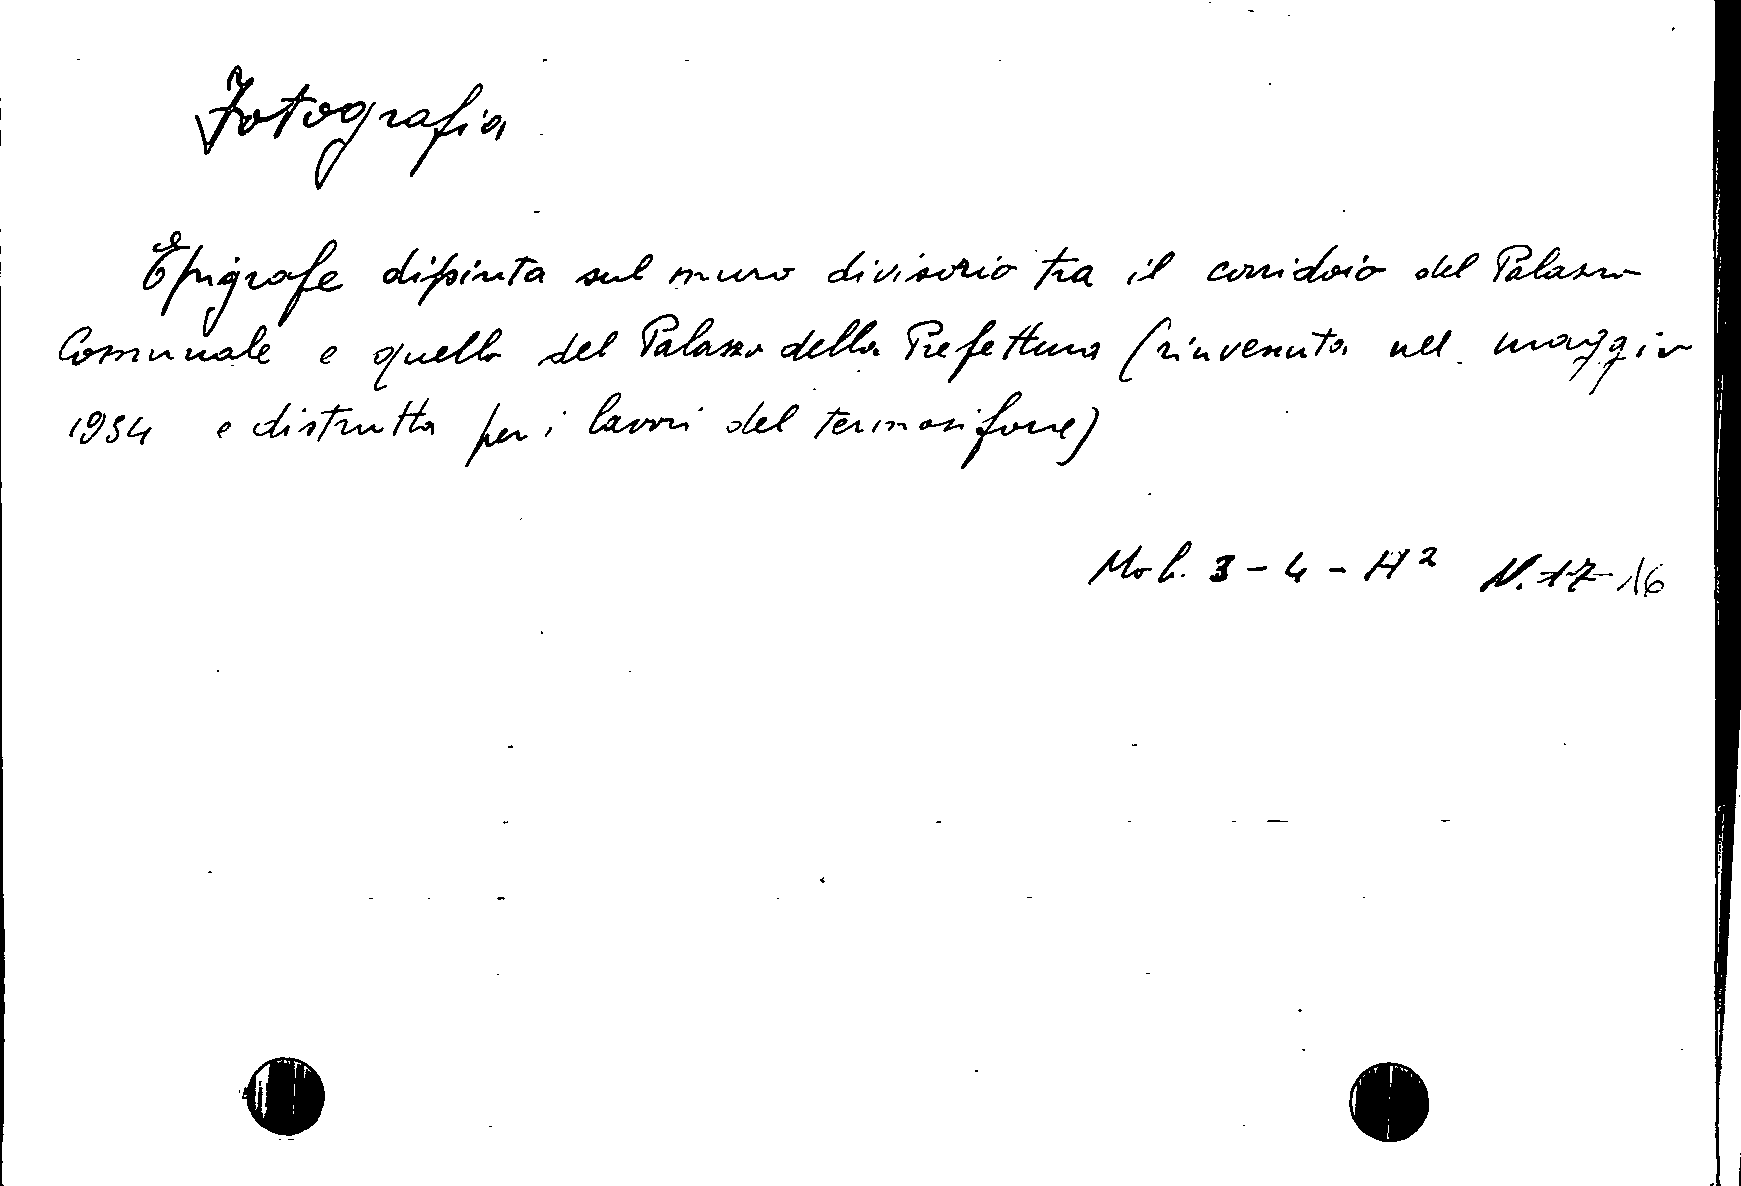 Fotografia
Epigrafe dipinta sul muro divisorio tra il corridoio del Palazzo
Comunale e quello del Palazzo della Prefettura (rinvenuta nel maggio
1934 e distrutta per i lavori del termosifone)
Mob. 3-4-H² N. 17 16